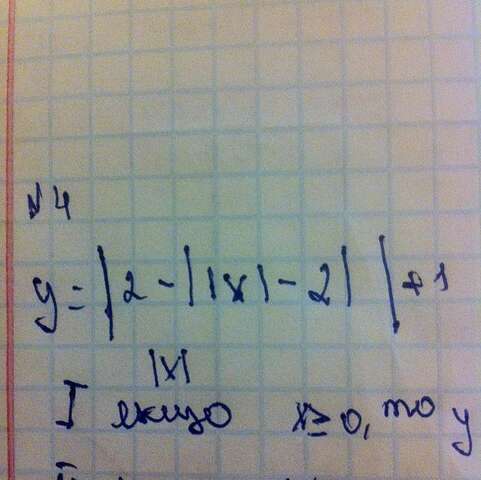 №4
y = |2 - ||x| - 2| | + 1
|x|
I якщо x ≥ 0, то y